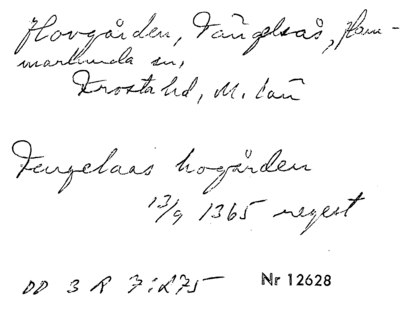 Hovgården, Tängelsås, Ham-
marlunda sn,
Frosta hd, M. län
Tengelaas hogården
13/9 1365 regest
DD 3 R 7:275 Nr 12628